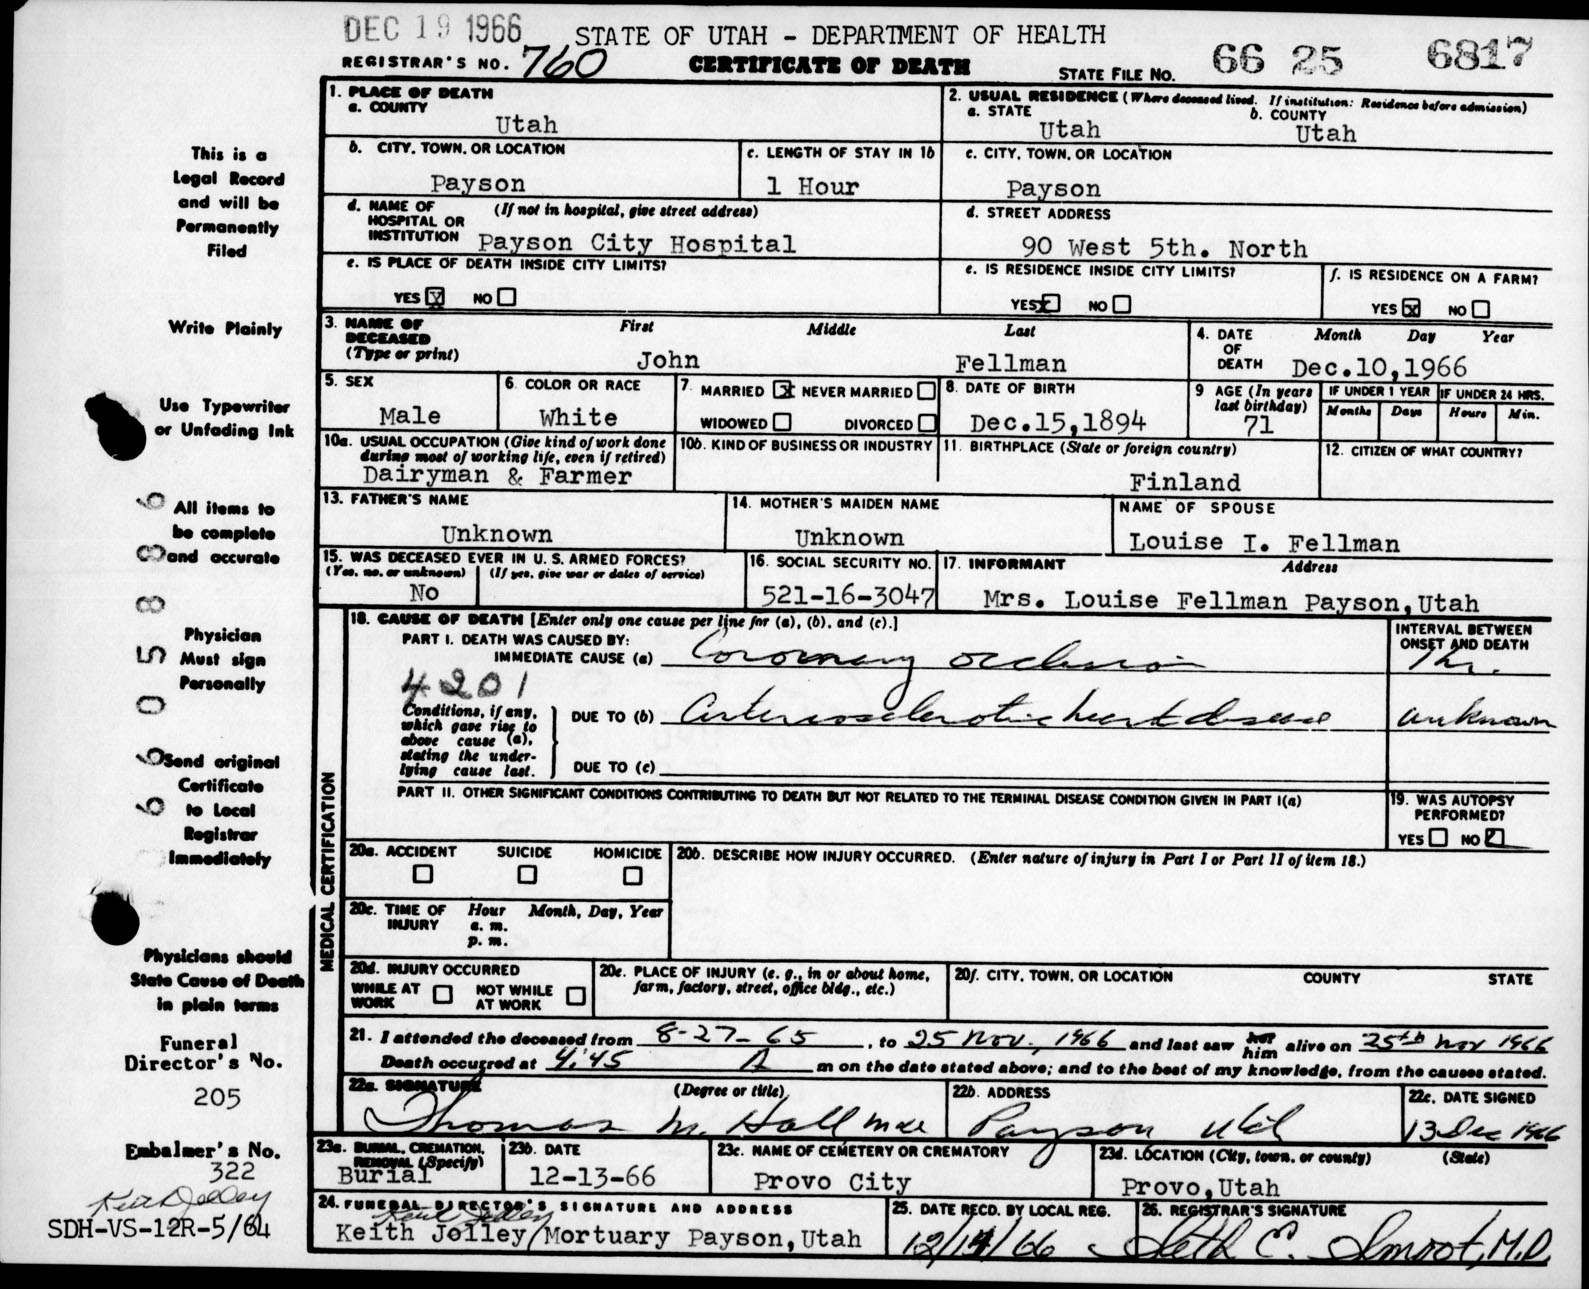 DEC 19 1966 STATE OF UTAH - DEPARTMENT OF HEALTH
REGISTRAR'S NO. 760 CERTIFICATE OF DEATH STATE FILE NO. 66 25 6817
1. PLACE OF DEATH
a. COUNTY
Utah
2. USUAL RESIDENCE (Where deceased lived. If institution: Residence before admission)
a. STATE b. COUNTY
Utah Utah
b. CITY, TOWN, OR LOCATION
Payson
c. LENGTH OF STAY IN 1b
1 Hour
c. CITY, TOWN, OR LOCATION
Payson
d. NAME OF (If not in hospital, give street address)
HOSPITAL OR
INSTITUTION Payson City Hospital
d. STREET ADDRESS
90 West 5th. North
e. IS PLACE OF DEATH INSIDE CITY LIMITS?
YES X NO
e. IS RESIDENCE INSIDE CITY LIMITS?
YES X NO
f. IS RESIDENCE ON A FARM?
YES X NO
3. NAME OF First Middle Last
DECEASED
(Type or print) John Fellman
4. DATE Month Day Year
OF
DEATH Dec.10,1966
5. SEX
Male
6. COLOR OR RACE
White
7. MARRIED X NEVER MARRIED
WIDOWED DIVORCED
8. DATE OF BIRTH
Dec.15,1894
9 AGE (In years
last birthday)
71
IF UNDER 1 YEAR IF UNDER 24 HRS.
Months Days Hours Min.
10a. USUAL OCCUPATION (Give kind of work done
during most of working life, even if retired)
Dairyman & Farmer
10b. KIND OF BUSINESS OR INDUSTRY
11. BIRTHPLACE (State or foreign country)
Finland
12. CITIZEN OF WHAT COUNTRY?
13. FATHER'S NAME
Unknown
14. MOTHER'S MAIDEN NAME
Unknown
NAME OF SPOUSE
Louise I. Fellman
15. WAS DECEASED EVER IN U. S. ARMED FORCES?
(Yes, no, or unknown) (If yes, give war or dates of service)
No
16. SOCIAL SECURITY NO.
521-16-3047
17. INFORMANT Address
Mrs. Louise Fellman Payson,Utah
MEDICAL CERTIFICATION
18. CAUSE OF DEATH [Enter only one cause per line for (a), (b), and (c).]
PART I. DEATH WAS CAUSED BY:
IMMEDIATE CAUSE (a) Coronary occlusion
INTERVAL BETWEEN
ONSET AND DEATH
1 hr.
4201
Conditions, if any,
which gave rise to
above cause (a),
stating the under-
lying cause last.
DUE TO (b) Arteriosclerotic heart disease unknown
DUE TO (c)
PART II. OTHER SIGNIFICANT CONDITIONS CONTRIBUTING TO DEATH BUT NOT RELATED TO THE TERMINAL DISEASE CONDITION GIVEN IN PART I(a)
19. WAS AUTOPSY
PERFORMED?
YES NO
20a. ACCIDENT SUICIDE HOMICIDE
20b. DESCRIBE HOW INJURY OCCURRED. (Enter nature of injury in Part I or Part II of item 18.)
20c. TIME OF Hour Month, Day, Year
INJURY a. m.
p. m.
20d. INJURY OCCURRED
WHILE AT NOT WHILE
WORK AT WORK
20e. PLACE OF INJURY (e. g., in or about home,
farm, factory, street, office bldg., etc.)
20f. CITY, TOWN, OR LOCATION COUNTY STATE
21. I attended the deceased from 8-27-65, to 25 Nov., 1966 and last saw her him alive on 25th Nov 1966
Death occurred at 4:45 A m on the date stated above; and to the best of my knowledge, from the causes stated.
22a. SIGNATURE (Degree or title)
Thomas M. Hall
22b. ADDRESS
Payson Utah
22c. DATE SIGNED
13 Dec 1966
23a. BURIAL, CREMATION,
REMOVAL (Specify)
Burial
23b. DATE
12-13-66
23c. NAME OF CEMETERY OR CREMATORY
Provo City
23d. LOCATION (City, town, or county) (State)
Provo,Utah
24. FUNERAL DIRECTOR'S SIGNATURE AND ADDRESS
Keith Jolley
Keith Jolley Mortuary Payson,Utah
25. DATE RECD. BY LOCAL REG.
12/14/66
26. REGISTRAR'S SIGNATURE
Seth E. Smoot, M.D.
This is a
Legal Record
and will be
Permanently
Filed
Write Plainly
Use Typewriter
or Unfading Ink
All items to
be complete
and accurate
Physician
Must sign
Personally
Send original
Certificate
to Local
Registrar
Immediately
Physicians should
State Cause of Death
in plain terms
Funeral
Director's No.
205
Embalmer's No.
322
Keith Jolley
SDH-VS-12R-5/64